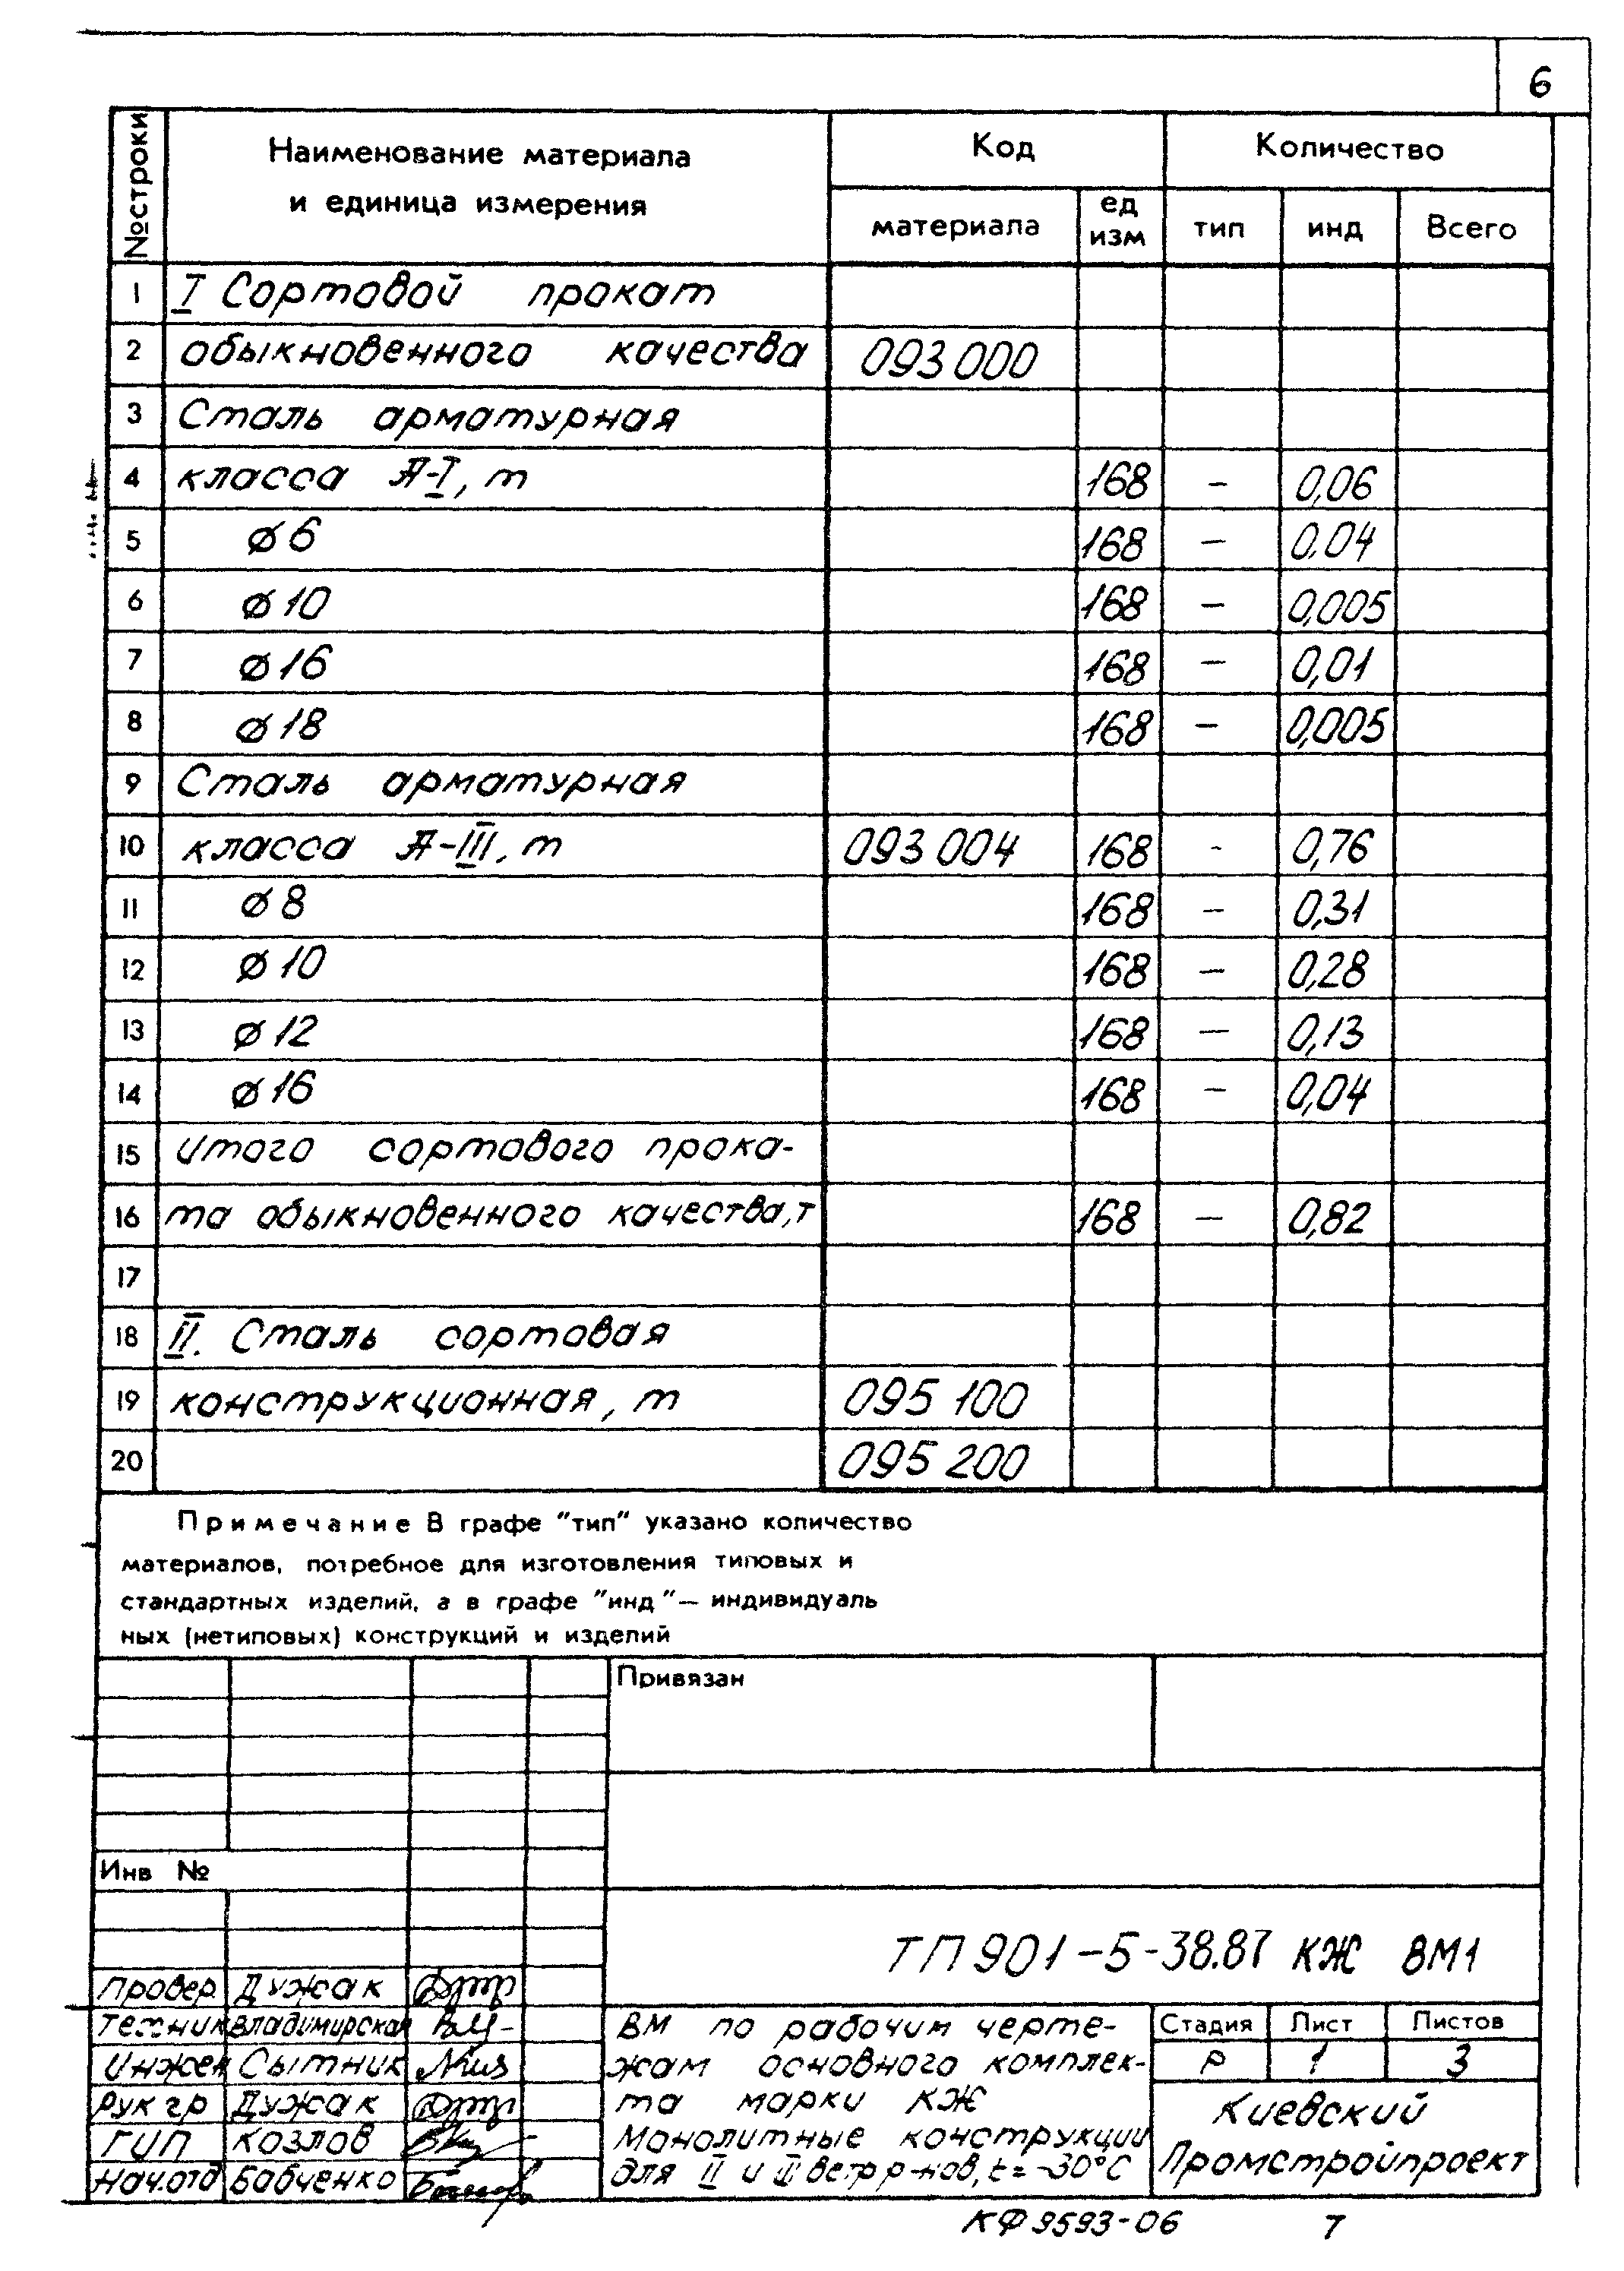 6
№ строки
Наименование материала
и единица измерения
Код
Количество
материала
ед
изм
тип
инд
Всего
1 I Сортовой прокат
2 обыкновенного качества 093 000
3 Сталь арматурная
4 класса А-I, т 168 – 0,06
5 ø 6 168 – 0.04
6 ø 10 168 – 0,005
7 ø 16 168 – 0,01
8 ø 18 168 – 0,005
9 Сталь арматурная
10 класса А-III, т 093 004 168 - 0,76
11 ø 8 168 – 0,31
12 ø 10 168 – 0,28
13 ø 12 168 – 0,13
14 ø 16 168 – 0,04
15 итого сортового прока-
16 та обыкновенного качества, т 168 – 0,82
17
18 II. Сталь сортовая
19 конструкционная, т 095 100
20 095 200
Примечание В графе "тип" указано количество
материалов, потребное для изготовления типовых и
стандартных изделий, а в графе "инд" — индивидуаль
ных (нетиповых) конструкций и изделий
Привязан
Инв №
ТП 901-5-38.87 КЖ ВМ1
провер. Дужак
техник Владимирская
Инжен Сытник
Рук гр Дужак
ГИП Козлов
Нач.отд Бабченко
ВМ по рабочим черте-
жам основного комплек-
та марки КЖ
Монолитные конструкции
для II и III ветр р-нов, t = -30°С
Стадия Лист Листов
Р 1 3
Киевский
Промстройпроект
КФ 9593-06 7